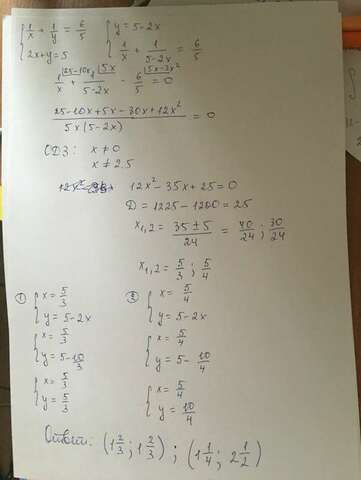 { 1/x + 1/y = 6/5   { y = 5-2x
{ 2x+y=5   { 1/x + 1/(5-2x) = 6/5
1/x |25-10x + 1/(5-2x) |5x - 6/5 |5x-2x² = 0
(25-10x+5x-30x+12x²)/(5x(5-2x)) = 0
ОДЗ: x≠0
x≠2.5
12x²-35x+25=0
D = 1225-1200 = 25
x1,2 = (35±5)/24 = 40/24 ; 30/24
x1,2 = 5/3 ; 5/4
① { x = 5/3   ② { x = 5/4
{ y = 5-2x   { y = 5-2x
{ x = 5/3   { x = 5/4
{ y = 5-10/3   { y = 5- 10/4
{ x = 5/3   { x = 5/4
{ y = 5/3   { y = 10/4
Ответ: (1 2/3 ; 1 2/3) ; (1 1/4 ; 2 1/2)